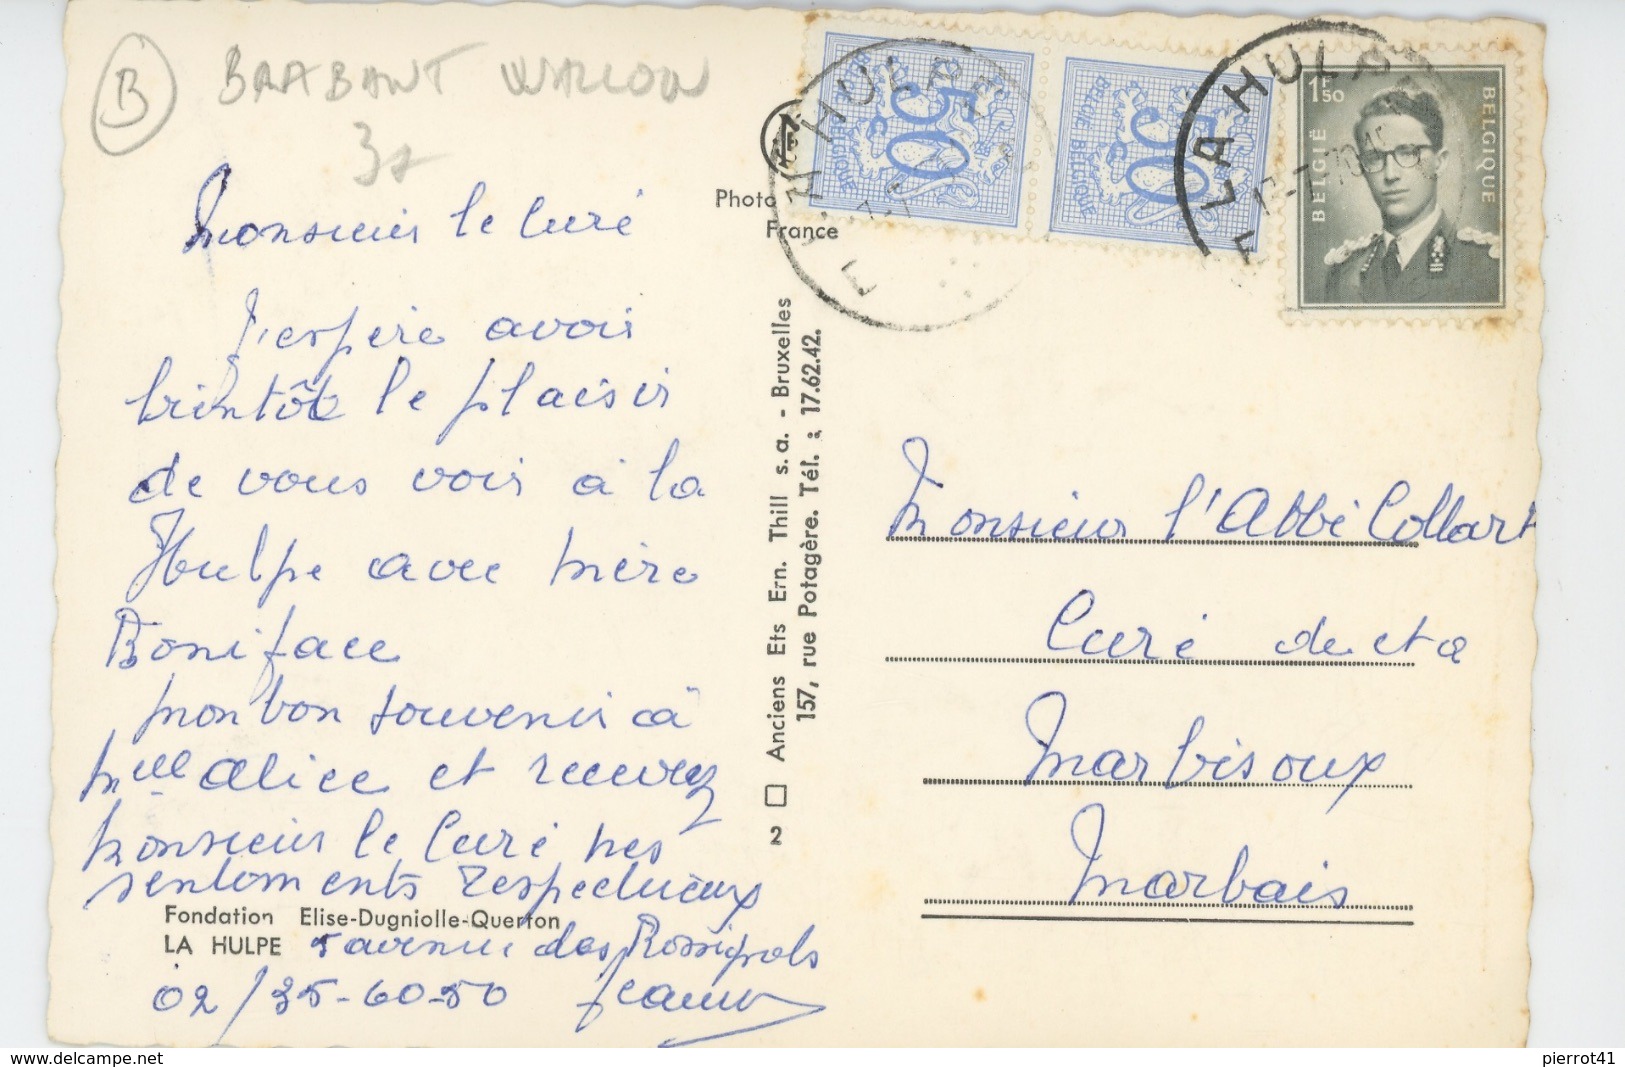 B BRABANT WALLON
3,-
Monsieur le Curé
J'espère avoir
bientôt le plaisir
de vous voir à la
Hulpe avec mère
Boniface
mon bon souvenir à
Melle Alice et recevez
Monsieur le Curé mes
sentiments respectueux
Fondation Elise-Dugniolle-Querton
LA HULPE 5 avenue des Rossignols
02/35-60-50 Jeanne
Photo
France
Anciens Ets Ern. Thill s.a. - Bruxelles
157, rue Potagère. Tél. : 17.62.42.
2
LA HULPE
50
BELGIQUE
BELGIE
50
BELGIE BELGIQUE
LA HULPE
1F50
BELGIË
BELGIQUE
Monsieur l'Abbé Collart
Curé de et à
Marbisoux
Marbais
pierrot41
https://www.delcampe.net